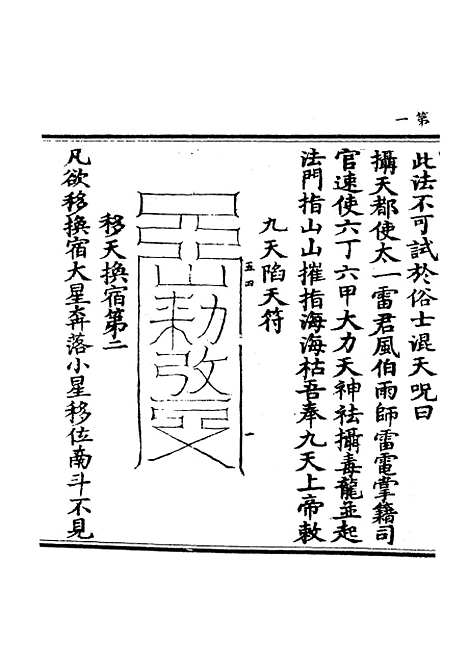 第一
此法不可試於俗士混天呪曰
攝天都使太一雷君風伯雨師雷電掌籍司
官速使六丁六甲大力天神祛攝毒龍並起
法門指山山摧指海海枯吾奉九天上帝敕
九天陷天符
五四
一
敕
移天換宿第二
凡欲移換宿大星奔落小星移位南斗不見